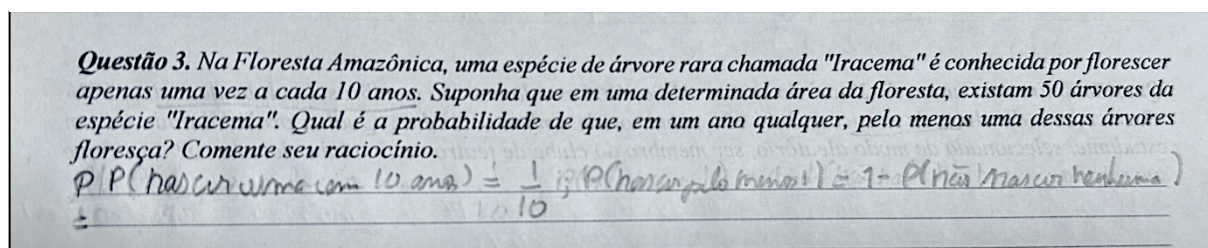 Questão 3. Na Floresta Amazônica, uma espécie de árvore rara chamada "Iracema" é conhecida por florescer
apenas uma vez a cada 10 anos. Suponha que em uma determinada área da floresta, existam 50 árvores da
espécie "Iracema". Qual é a probabilidade de que, em um ano qualquer, pelo menos uma dessas árvores
floresça? Comente seu raciocínio.
P P(nascer uma com 10 anos) = 1/10 ; P(nascer pelo menos 1) = 1 - P(não nascer nenhuma)